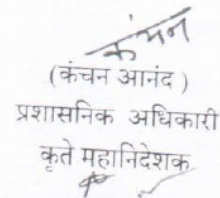 कंचन
(कंचन आनंद )
प्रशासनिक अधिकारी
कृते महानिदेशक